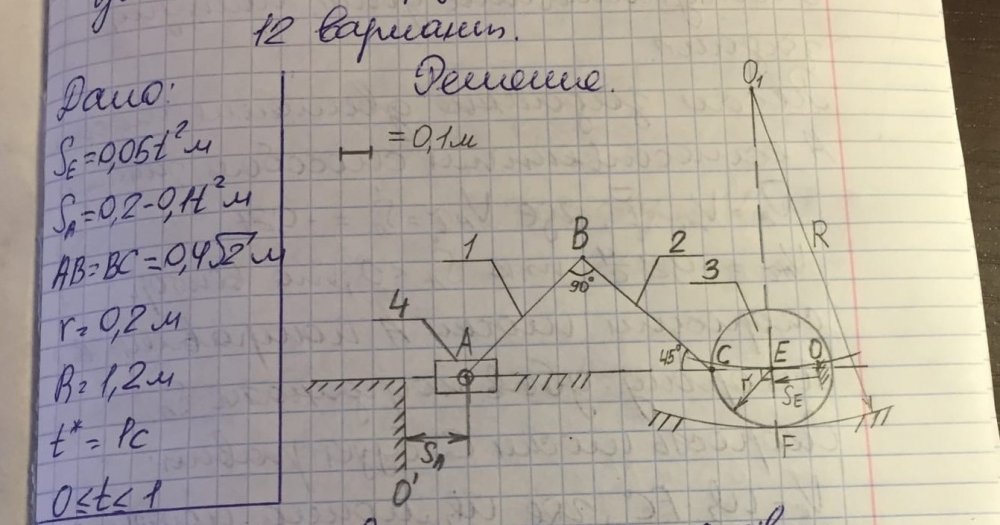 12 вариант.
Дано:
S_E=0,05t² м
S_A=0,2-0,1t² м
AB=BC=0,4√2 м
r=0,2 м
R=1,2 м
t*=1с
0≤t≤1
Решение.
= 0,1м
O₁
R
B
1
2
3
90°
4
A
45°
C
E
O
r
S_E
S_A
F
O'